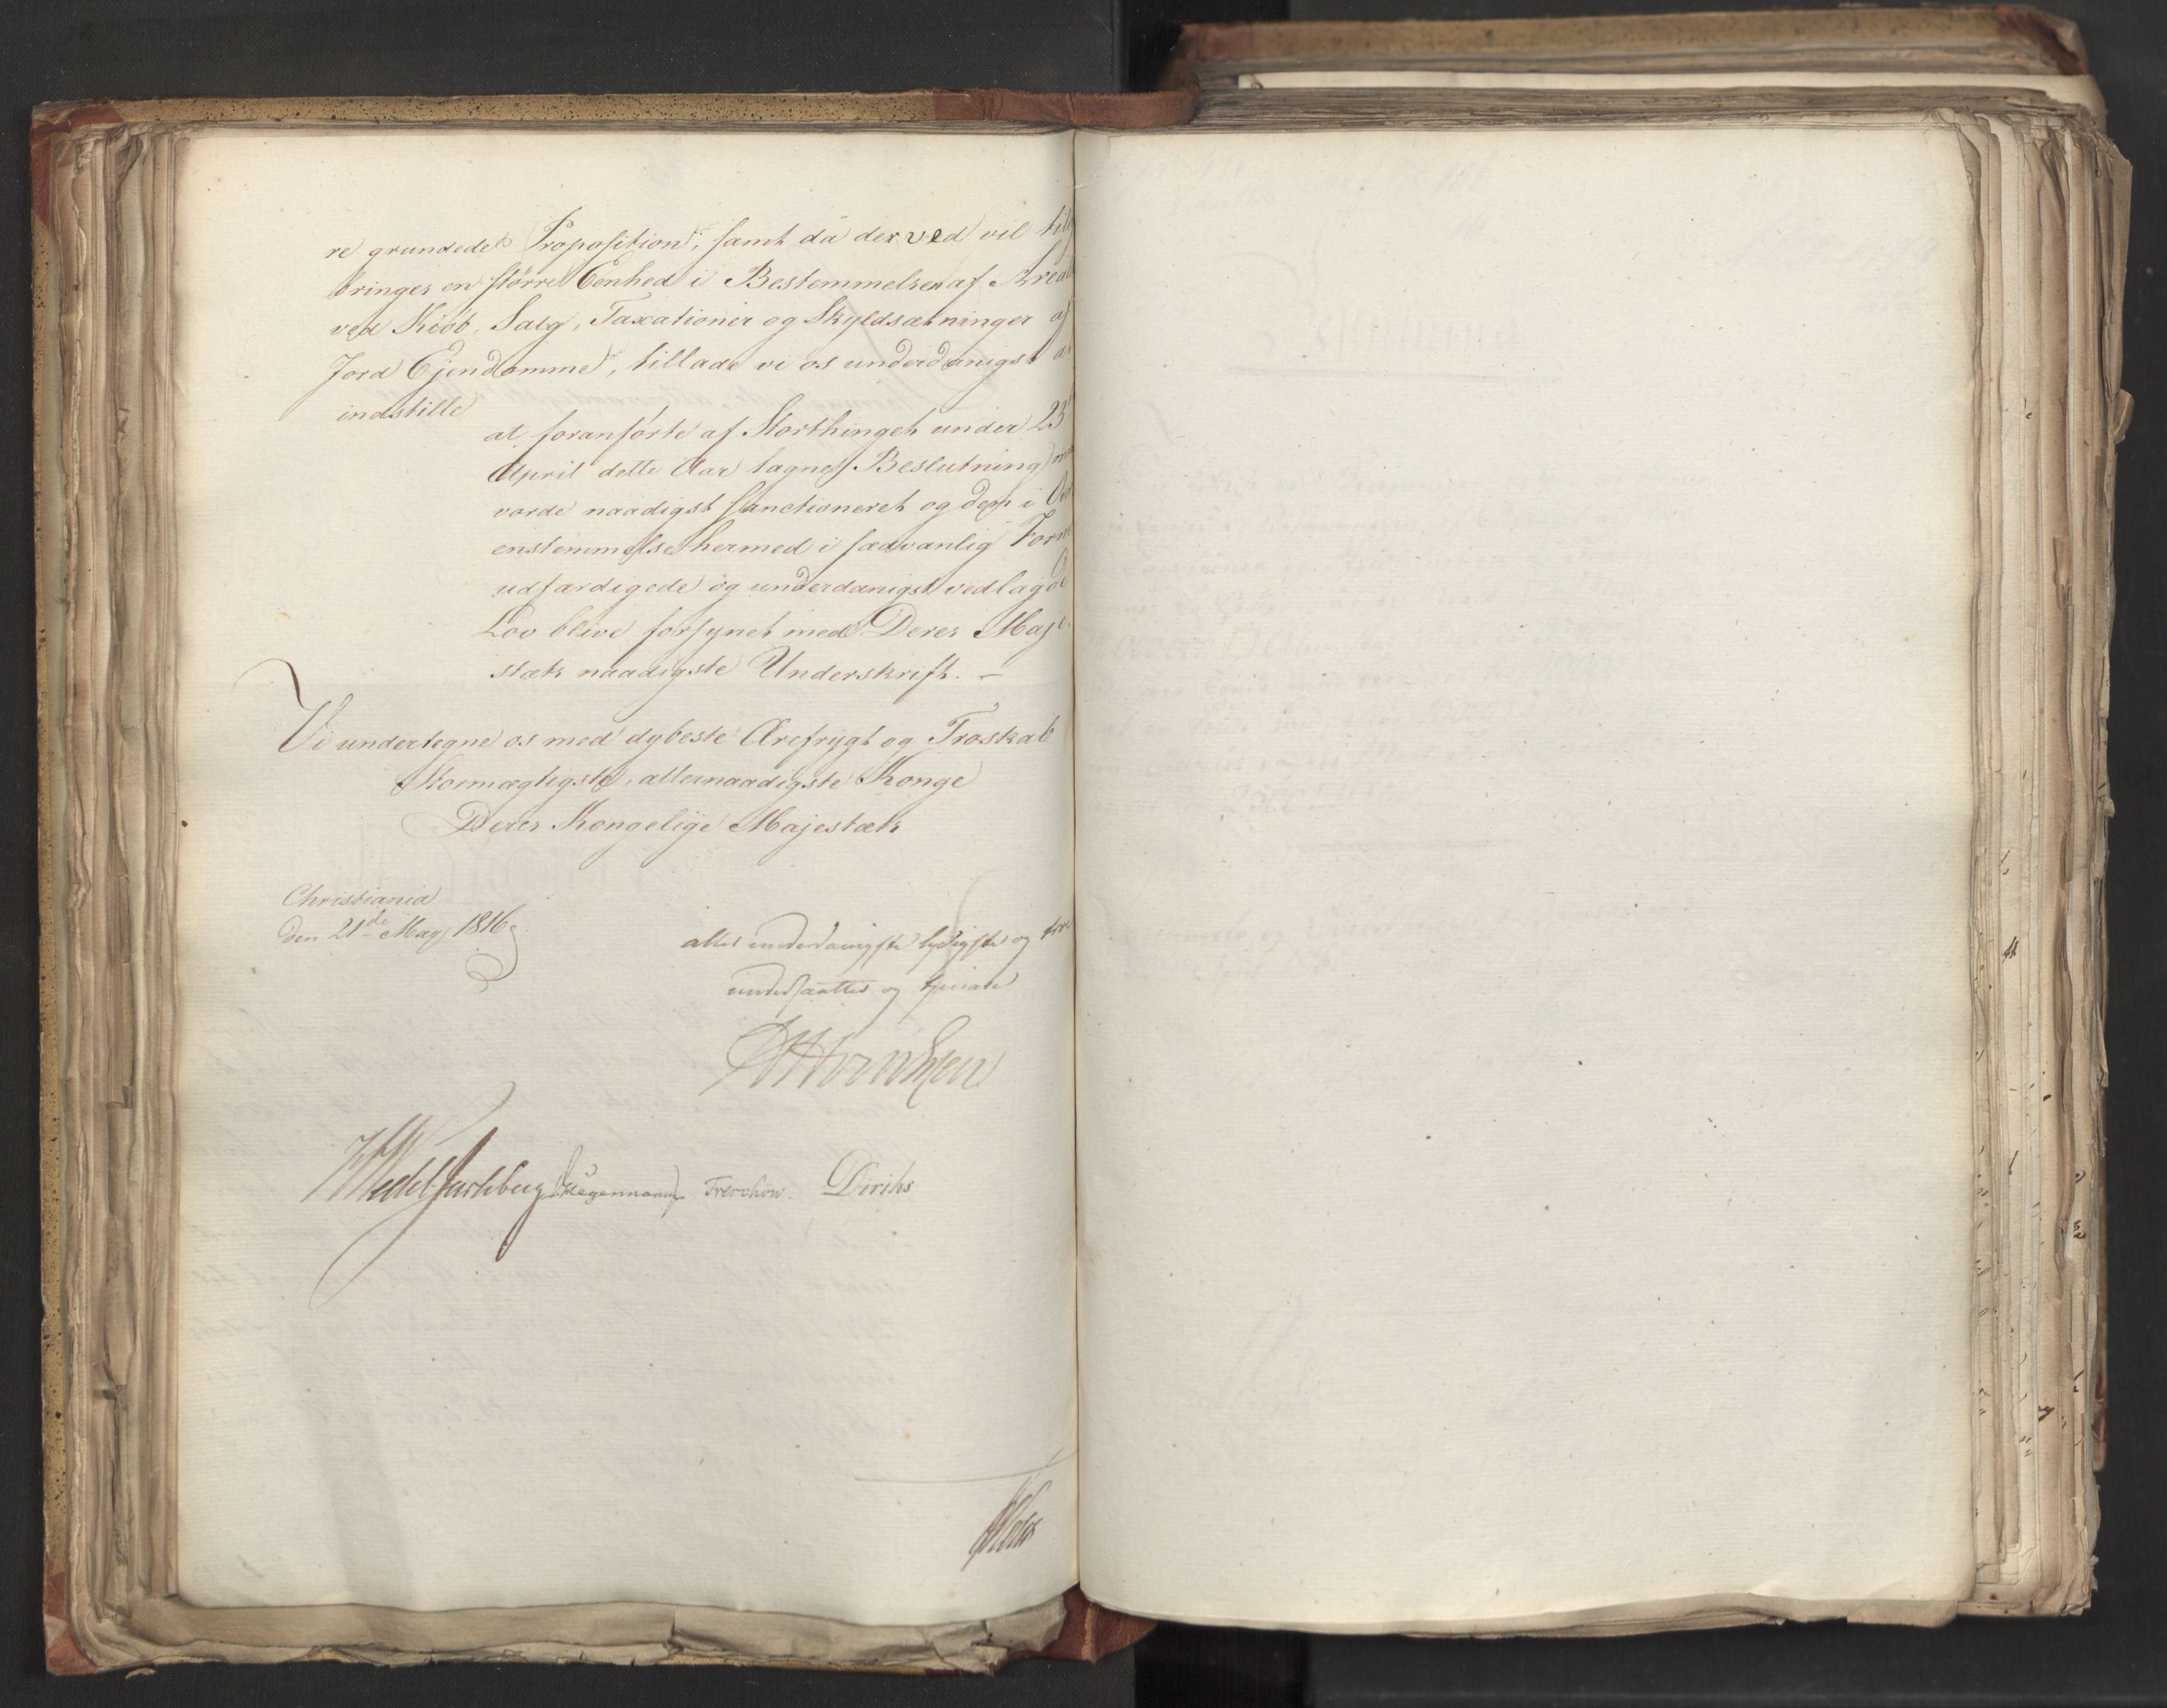 re grundede Proposition, samt da derved vil til
bringes en större Eenhed i Bestemmelsen af Area
ved Kiöb, Salg, Taxationer og Skyldsætninger af
Jord Ejendomme, tillade vi os underdanigst at
indstille
at foranförte af Storthinget under 23
April dette Aar tagne Beslutning
vorde naadigst sanctioneret og den i Ov
enstemmelse hermed i sædvanlig Form
udfærdigede og underdanigst vedlagde
Lov blive forsynet med Deres Maje
stæts naadigste Underskrift. –
Vi undertegne os med dybeste Ærefrygt og Troskab
Stormægtigste, allernaadigste Konge
Deres Kongelige Majestæts
Christiania
den 21de May 1816
aller underdanigste lydigste og troe
undersaatter og tienere
Wedel Jarlsberg Hegermann Treschow. Diriks